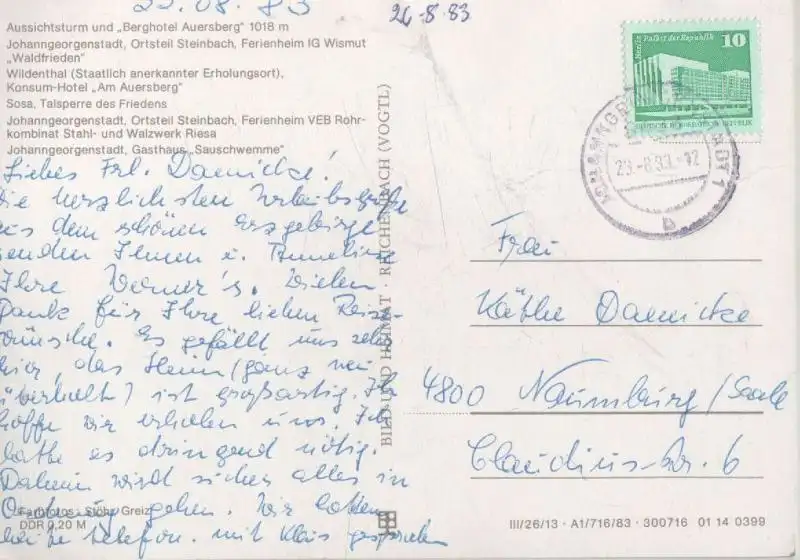 23.08.83
26-8.83
Aussichtsturm und „Berghotel Auersberg" 1018 m
Johanngeorgenstadt, Ortsteil Steinbach, Ferienheim IG Wismut
„Waldfrieden"
Wildenthal (Staatlich anerkannter Erholungsort),
Konsum-Hotel „Am Auersberg"
Sosa, Talsperre des Friedens
Johanngeorgenstadt, Ortsteil Steinbach, Ferienheim VEB Rohr-
kombinat Stahl- und Walzwerk Riesa
Johanngeorgenstadt, Gasthaus „Sauschwemme"
Liebes Frl. Damicke!
Die herzlichsten Urlaubsgrüße
aus dem schönen Erzgebirge
senden Ihnen u. Anneliese
Ihre Werner's. Vielen
Dank für Ihre lieben Reise-
wünsche. Es gefällt uns sehr
hier, das Heim (ganz neu
überholt) ist großartig. Ich
hoffe wir erholen uns. Ich
hatte es dringend nötig.
Daheim wird sicher alles in
Ordnung gehen. Wir hatten
heute telefon. mit Klaus gesprochen
Farbfotos: Stöhr, Greiz
DDR 0,20 M
BILD UND HEIMAT · REICHENBACH (VOGTL)
Berlin Palast der Republik 10
DEUTSCHE DEMOKRATISCHE REPUBLIK
23.-8.83.-12
b
Frau
Käthe Damicke
4800 Naumburg/Saale
Claudius-Str. 6
III/26/13 · A1/716/83 · 300716 01 14 0399